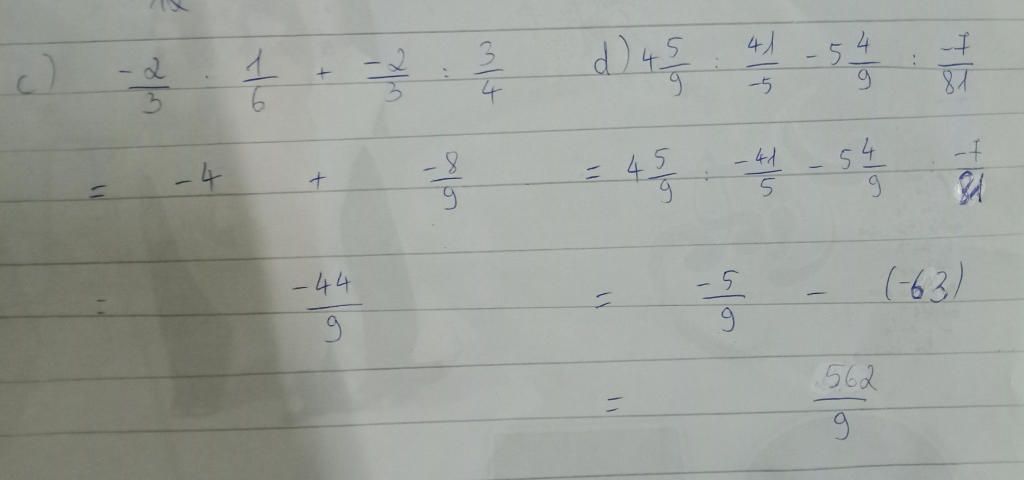 c) -2/3 : 1/6 + -2/3 : 3/4
= -4 + -8/9
= -44/9
d) 4 5/9 : 41/-5 - 5 4/9 : -7/81
= 4 5/9 : -41/5 - 5 4/9 : -7/81
= -5/9 - (-63)
= 562/9